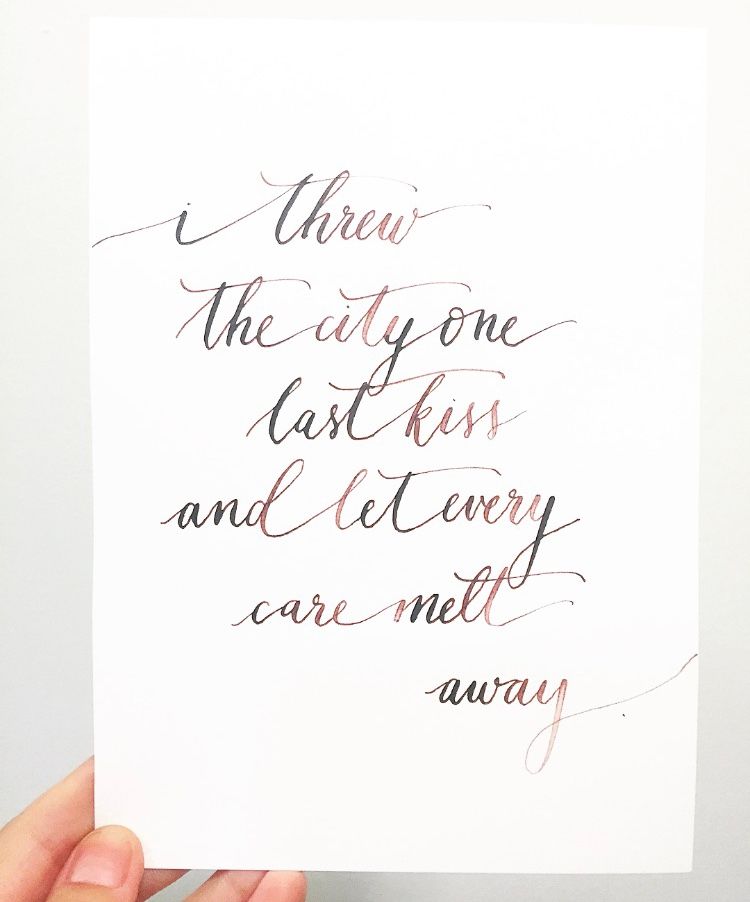 i threw
the city one
last kiss
and let every
care melt
away.